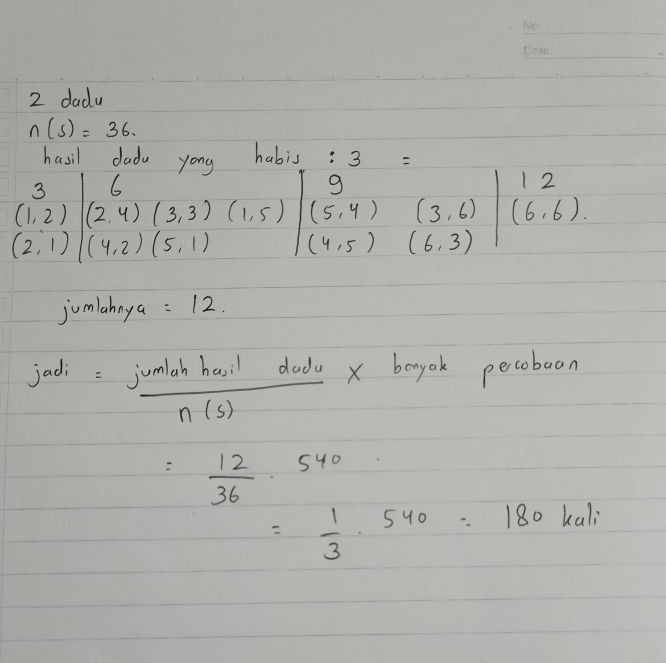 No.
Date.
2 dadu
n(s) = 36.
hasil dadu yang habis : 3 =
3 | 6 | 9 | 12
(1,2) | (2,4) (3,3) (1,5) | (5,4) (3,6) | (6,6).
(2,1) | (4,2) (5,1) | (4,5) (6,3) |
jumlahnya = 12.
jadi = jumlah hasil dadu × banyak percobaan
n(s)
= 12 . 540
36
= 1 . 540 = 180 kali
3